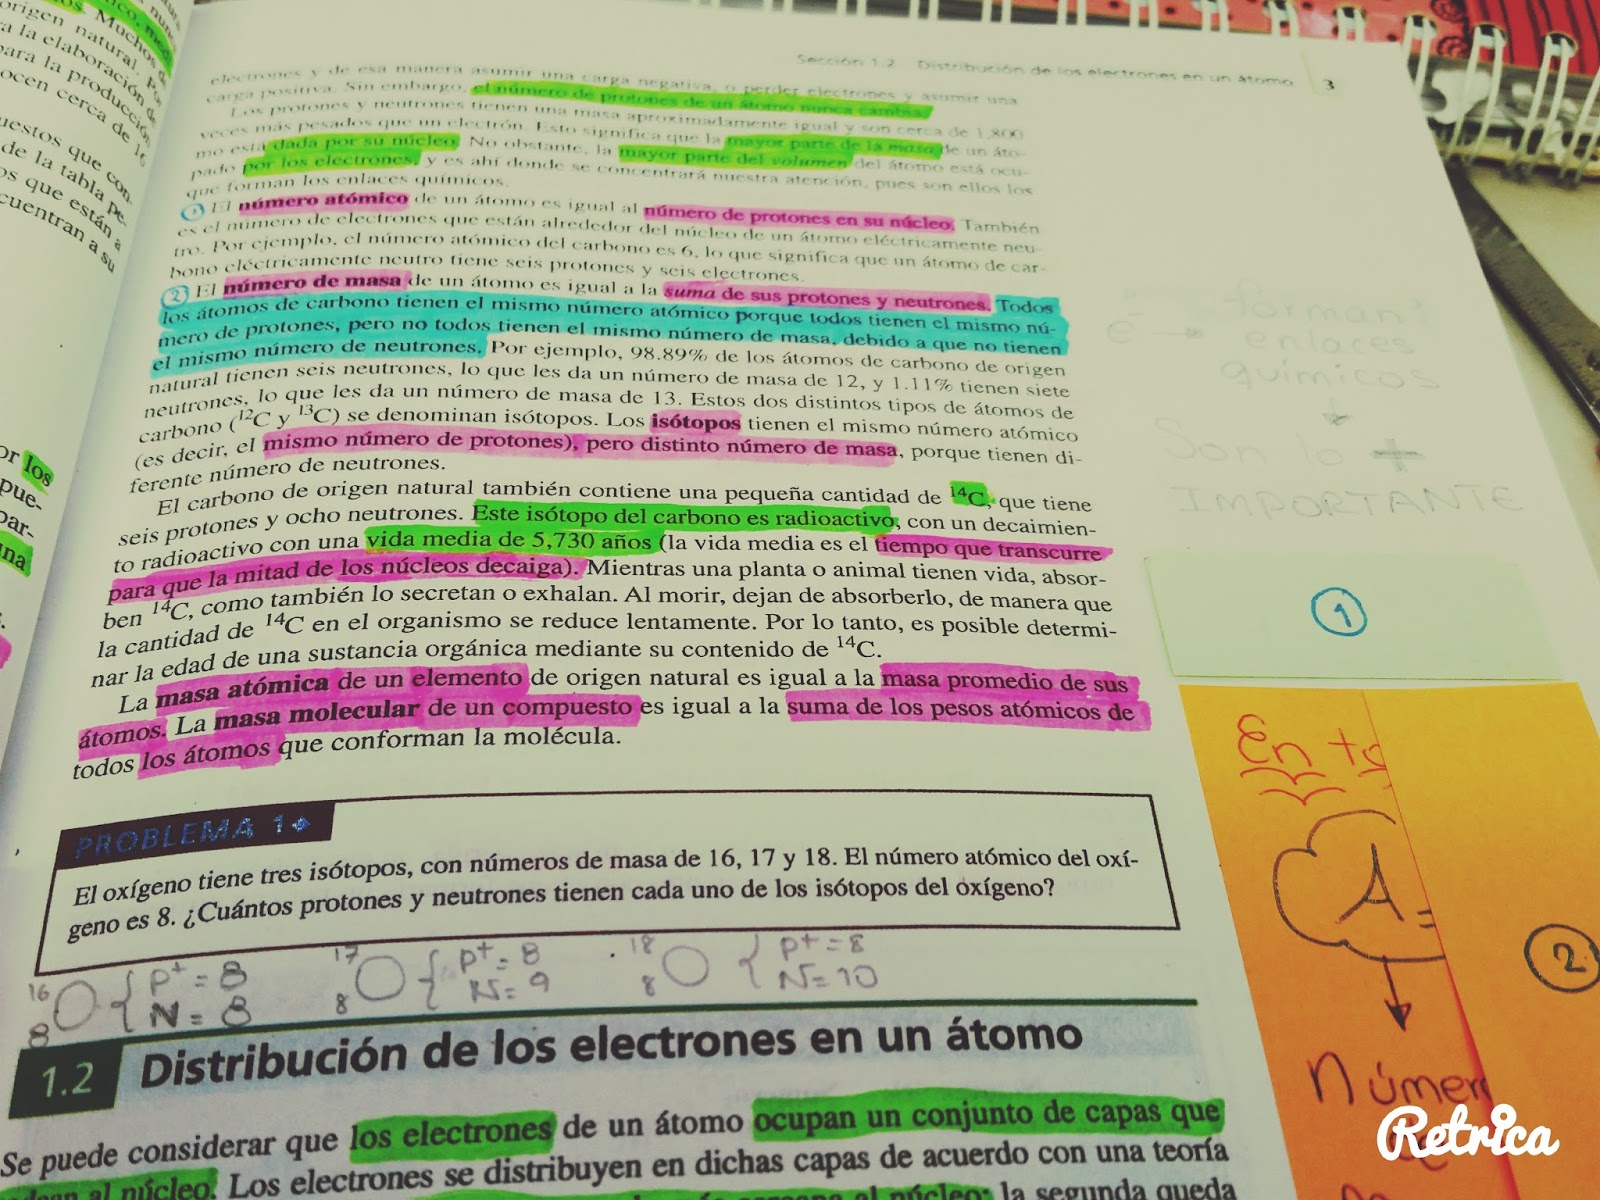 Sección 1.2 Distribución de los electrones en un átomo 3
electrones y de esa manera asumir una carga negativa, o perder electrones y asumir una
carga positiva. Sin embargo, el número de protones de un átomo nunca cambia.
Los protones y neutrones tienen una masa aproximadamente igual y son cerca de 1,800
veces más pesados que un electrón. Esto significa que la mayor parte de la masa de un áto-
mo está dada por su núcleo. No obstante, la mayor parte del volumen del átomo está ocu-
pado por los electrones, y es ahí donde se concentrará nuestra atención, pues son ellos los
que forman los enlaces químicos.
1 El número atómico de un átomo es igual al número de protones en su núcleo. También
es el número de electrones que están alrededor del núcleo de un átomo eléctricamente neu-
tro. Por ejemplo, el número atómico del carbono es 6, lo que significa que un átomo de car-
bono eléctricamente neutro tiene seis protones y seis electrones.
2 El número de masa de un átomo es igual a la suma de sus protones y neutrones. Todos
los átomos de carbono tienen el mismo número atómico porque todos tienen el mismo nú-
mero de protones, pero no todos tienen el mismo número de masa, debido a que no tienen
el mismo número de neutrones. Por ejemplo, 98.89% de los átomos de carbono de origen
natural tienen seis neutrones, lo que les da un número de masa de 12, y 1.11% tienen siete
neutrones, lo que les da un número de masa de 13. Estos dos distintos tipos de átomos de
carbono (¹²C y ¹³C) se denominan isótopos. Los isótopos tienen el mismo número atómico
(es decir, el mismo número de protones), pero distinto número de masa, porque tienen di-
ferente número de neutrones.
El carbono de origen natural también contiene una pequeña cantidad de ¹⁴C, que tiene
seis protones y ocho neutrones. Este isótopo del carbono es radioactivo, con un decaimien-
to radioactivo con una vida media de 5,730 años (la vida media es el tiempo que transcurre
para que la mitad de los núcleos decaiga). Mientras una planta o animal tienen vida, absor-
ben ¹⁴C, como también lo secretan o exhalan. Al morir, dejan de absorberlo, de manera que
la cantidad de ¹⁴C en el organismo se reduce lentamente. Por lo tanto, es posible determi-
nar la edad de una sustancia orgánica mediante su contenido de ¹⁴C.
La masa atómica de un elemento de origen natural es igual a la masa promedio de sus
átomos. La masa molecular de un compuesto es igual a la suma de los pesos atómicos de
todos los átomos que conforman la molécula.
PROBLEMA 1
El oxígeno tiene tres isótopos, con números de masa de 16, 17 y 18. El número atómico del oxí-
geno es 8. ¿Cuántos protones y neutrones tienen cada uno de los isótopos del oxígeno?
16 8 O { p+ = 8 N = 8
17 8 O { p+ = 8 N = 9
18 8 O { p+ = 8 N = 10
1.2 Distribución de los electrones en un átomo
Se puede considerar que los electrones de un átomo ocupan un conjunto de capas que
al núcleo. Los electrones se distribuyen en dichas capas de acuerdo con una teoría
al núcleo; la segunda queda
e⁻ → forman
enlaces
químicos
↓
Son lo +
IMPORTANTE
1
En
A =
2
Númer
Retrica
origen natural. Por
a la elaboración de
para la producción
ocen cerca de 16
uestos que con-
de la tabla pe-
os que están a
cuentran a su
or los
pue-
par-
una